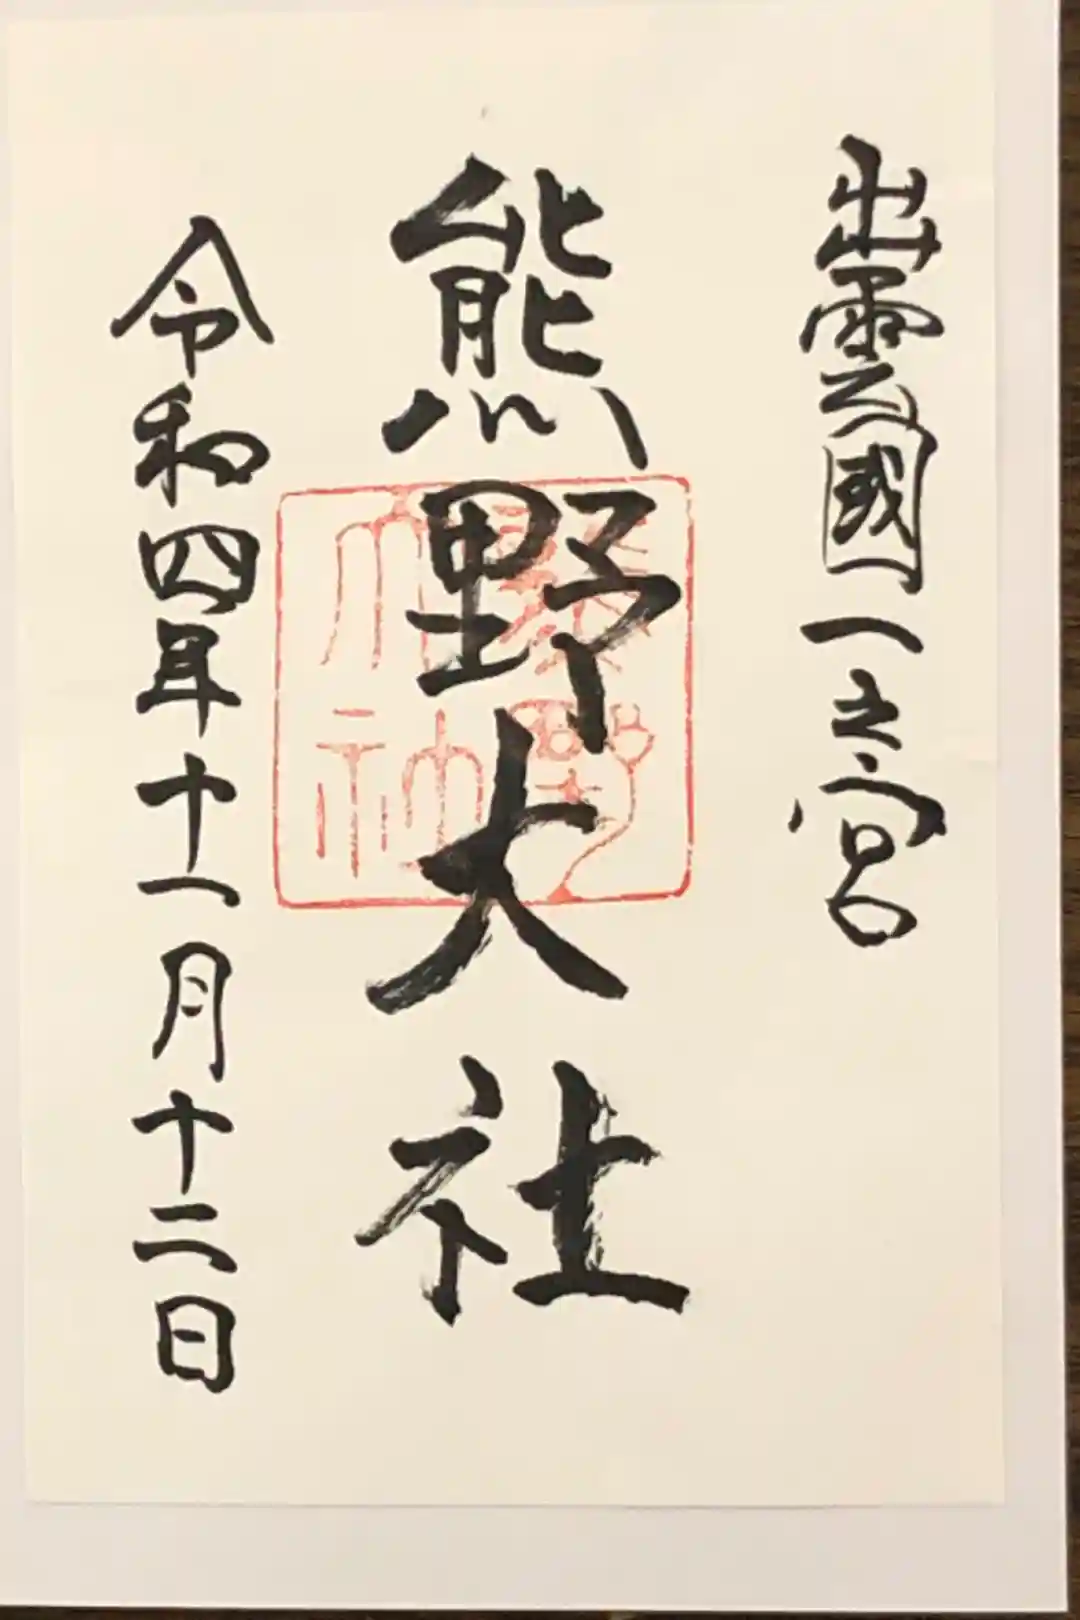 出雲國一之宮
熊野大社
令和四年十一月十二日
熊野
大社